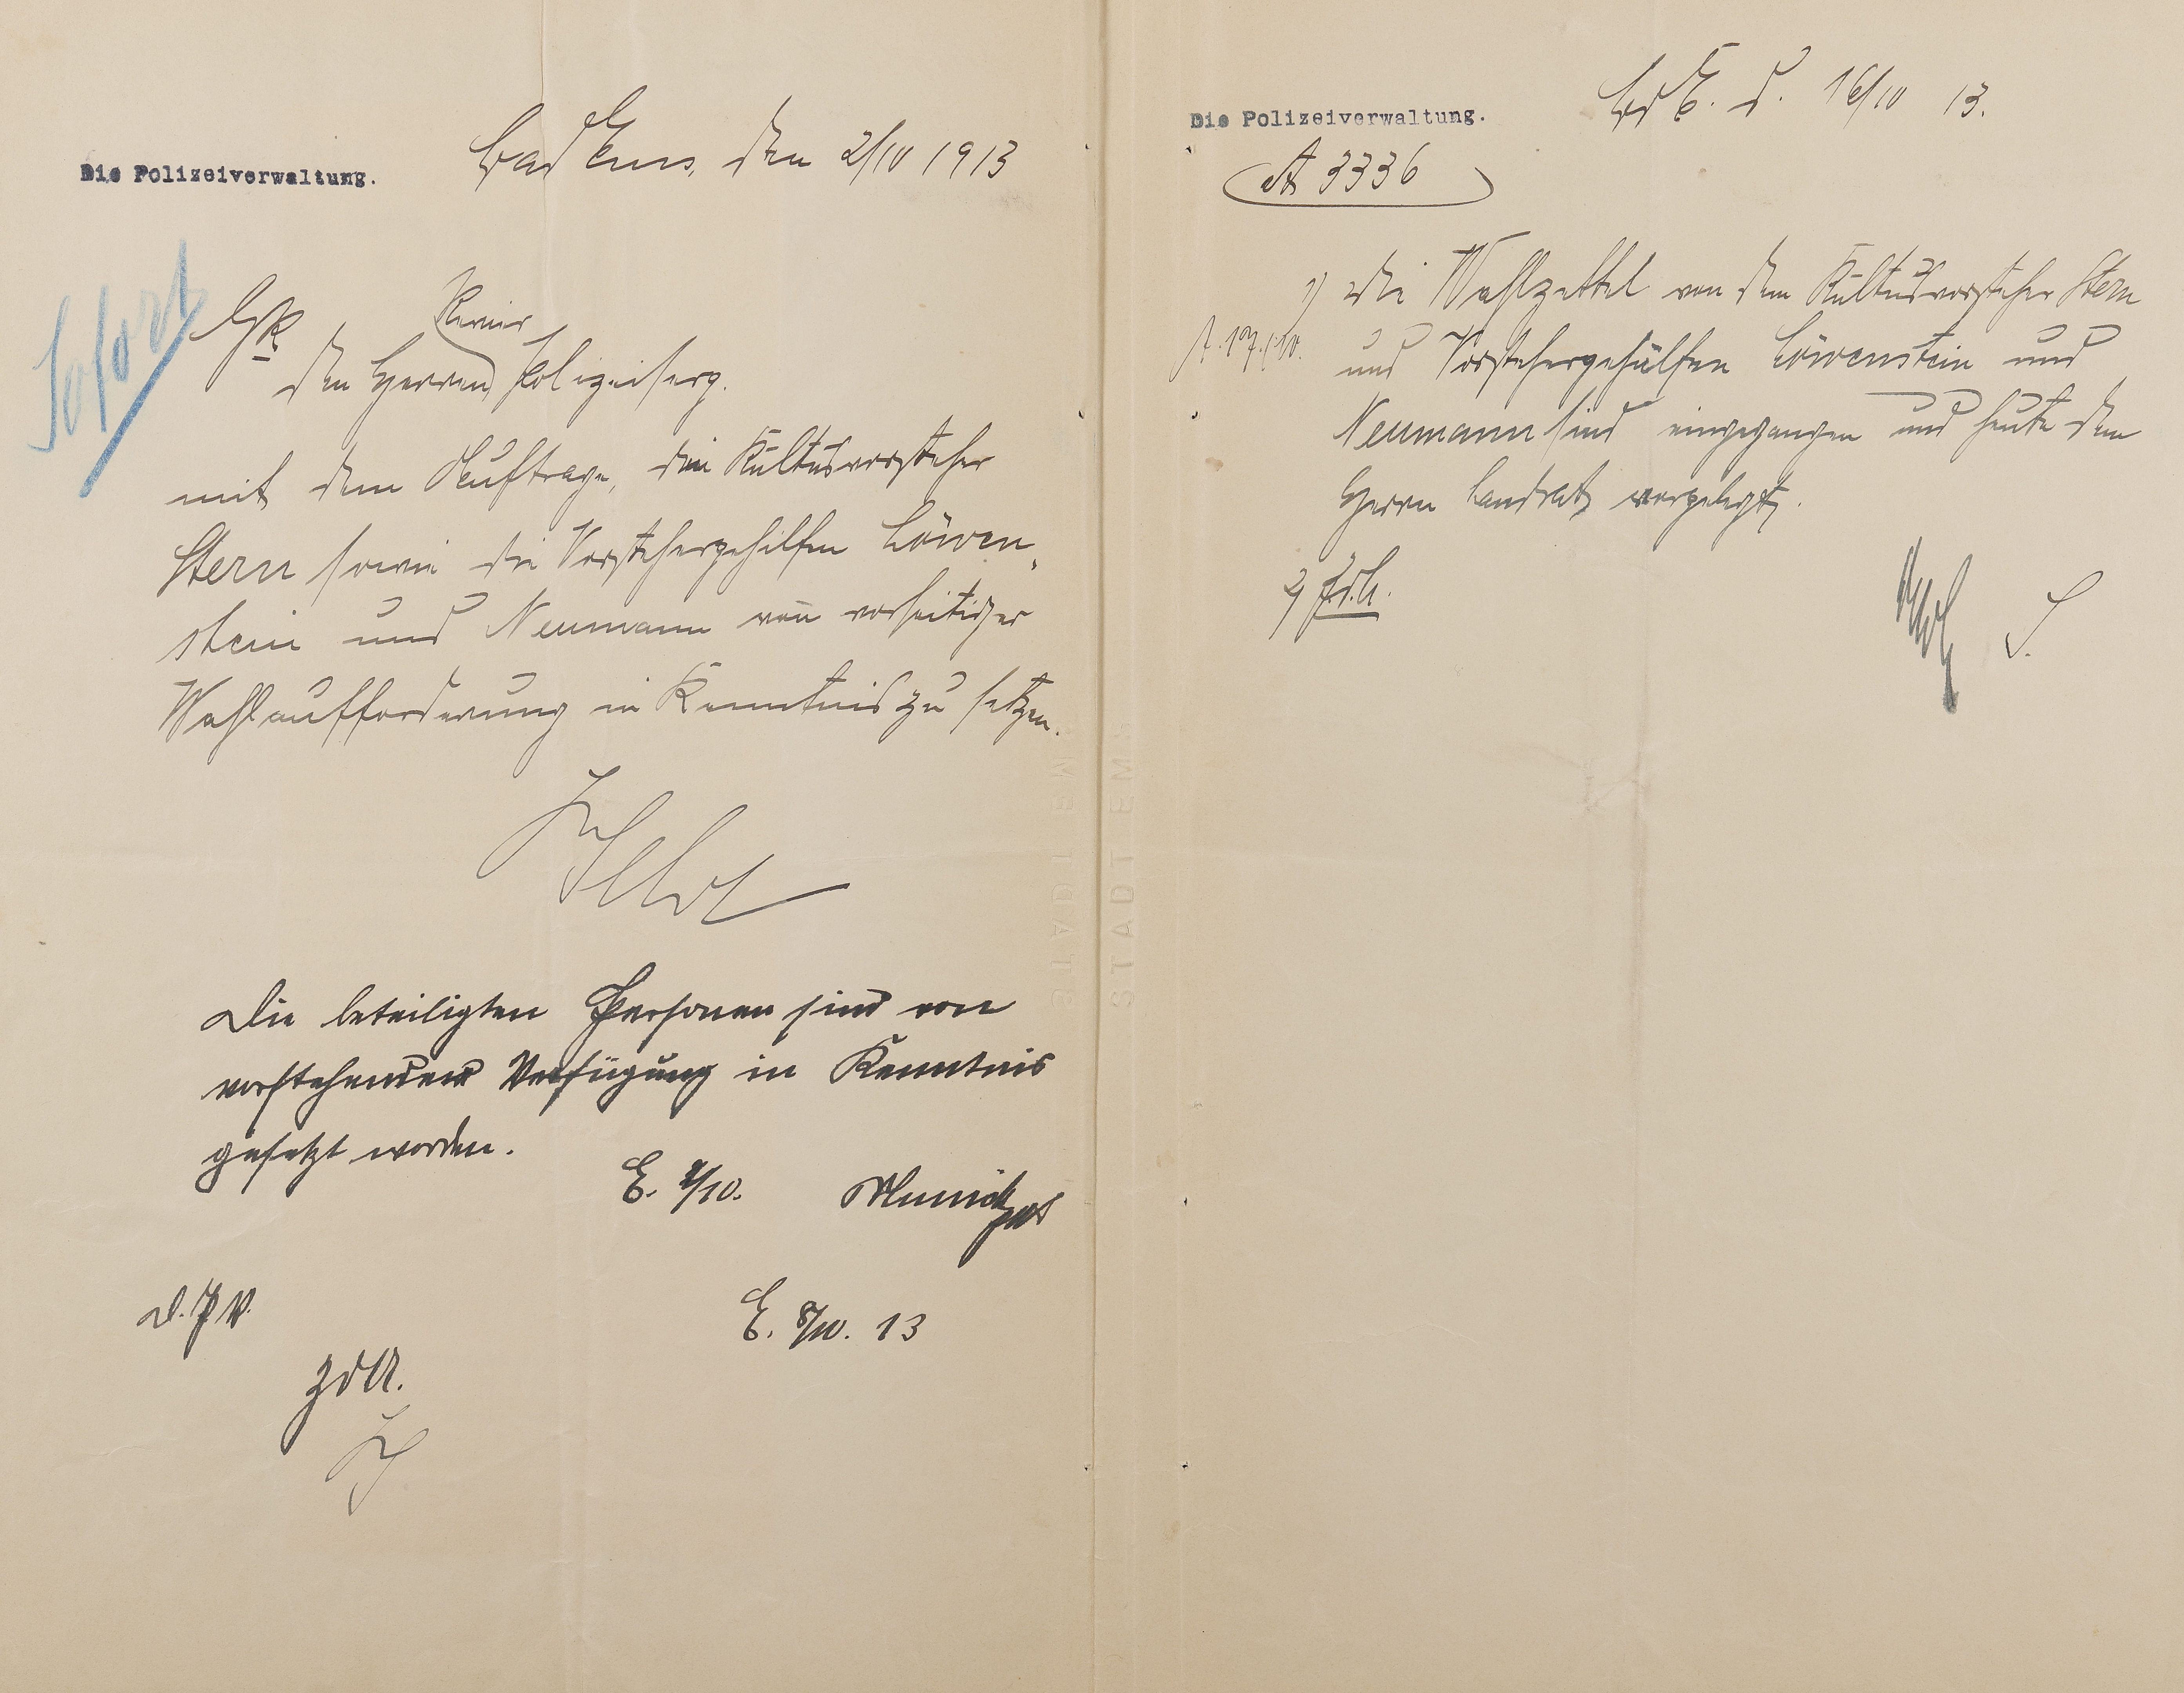 Die Polizeiverwaltung.
Bad Ems, den 2/10 1913
Sofort
Revier
den Herren Polizeiserg.
mit dem Auftrage, die Kultusvorsteher
Stern sowie die Vorstehergehilfen Löwen-
stein und Neumann von vorseitiger
Wahlaufforderung in Kenntnis zu setzen.
Die beteiligten Personen sind von
vorstehender Verfügung in Kenntnis
gesetzt worden.
E. /10.
D. P V.
E. 8/10. 13
ZdA.
STADT EMS
Die Polizeiverwaltung.
Bd E. d. 16/10 13.
A 3336
1) Die Wahlzettel von dem Kultusvorsteher Stern
und Vorstehergehülfen Löwenstein und
Neumann sind eingegangen und heute dem
Herrn Landrat vorgelegt.
2) Z.d.A.
S.